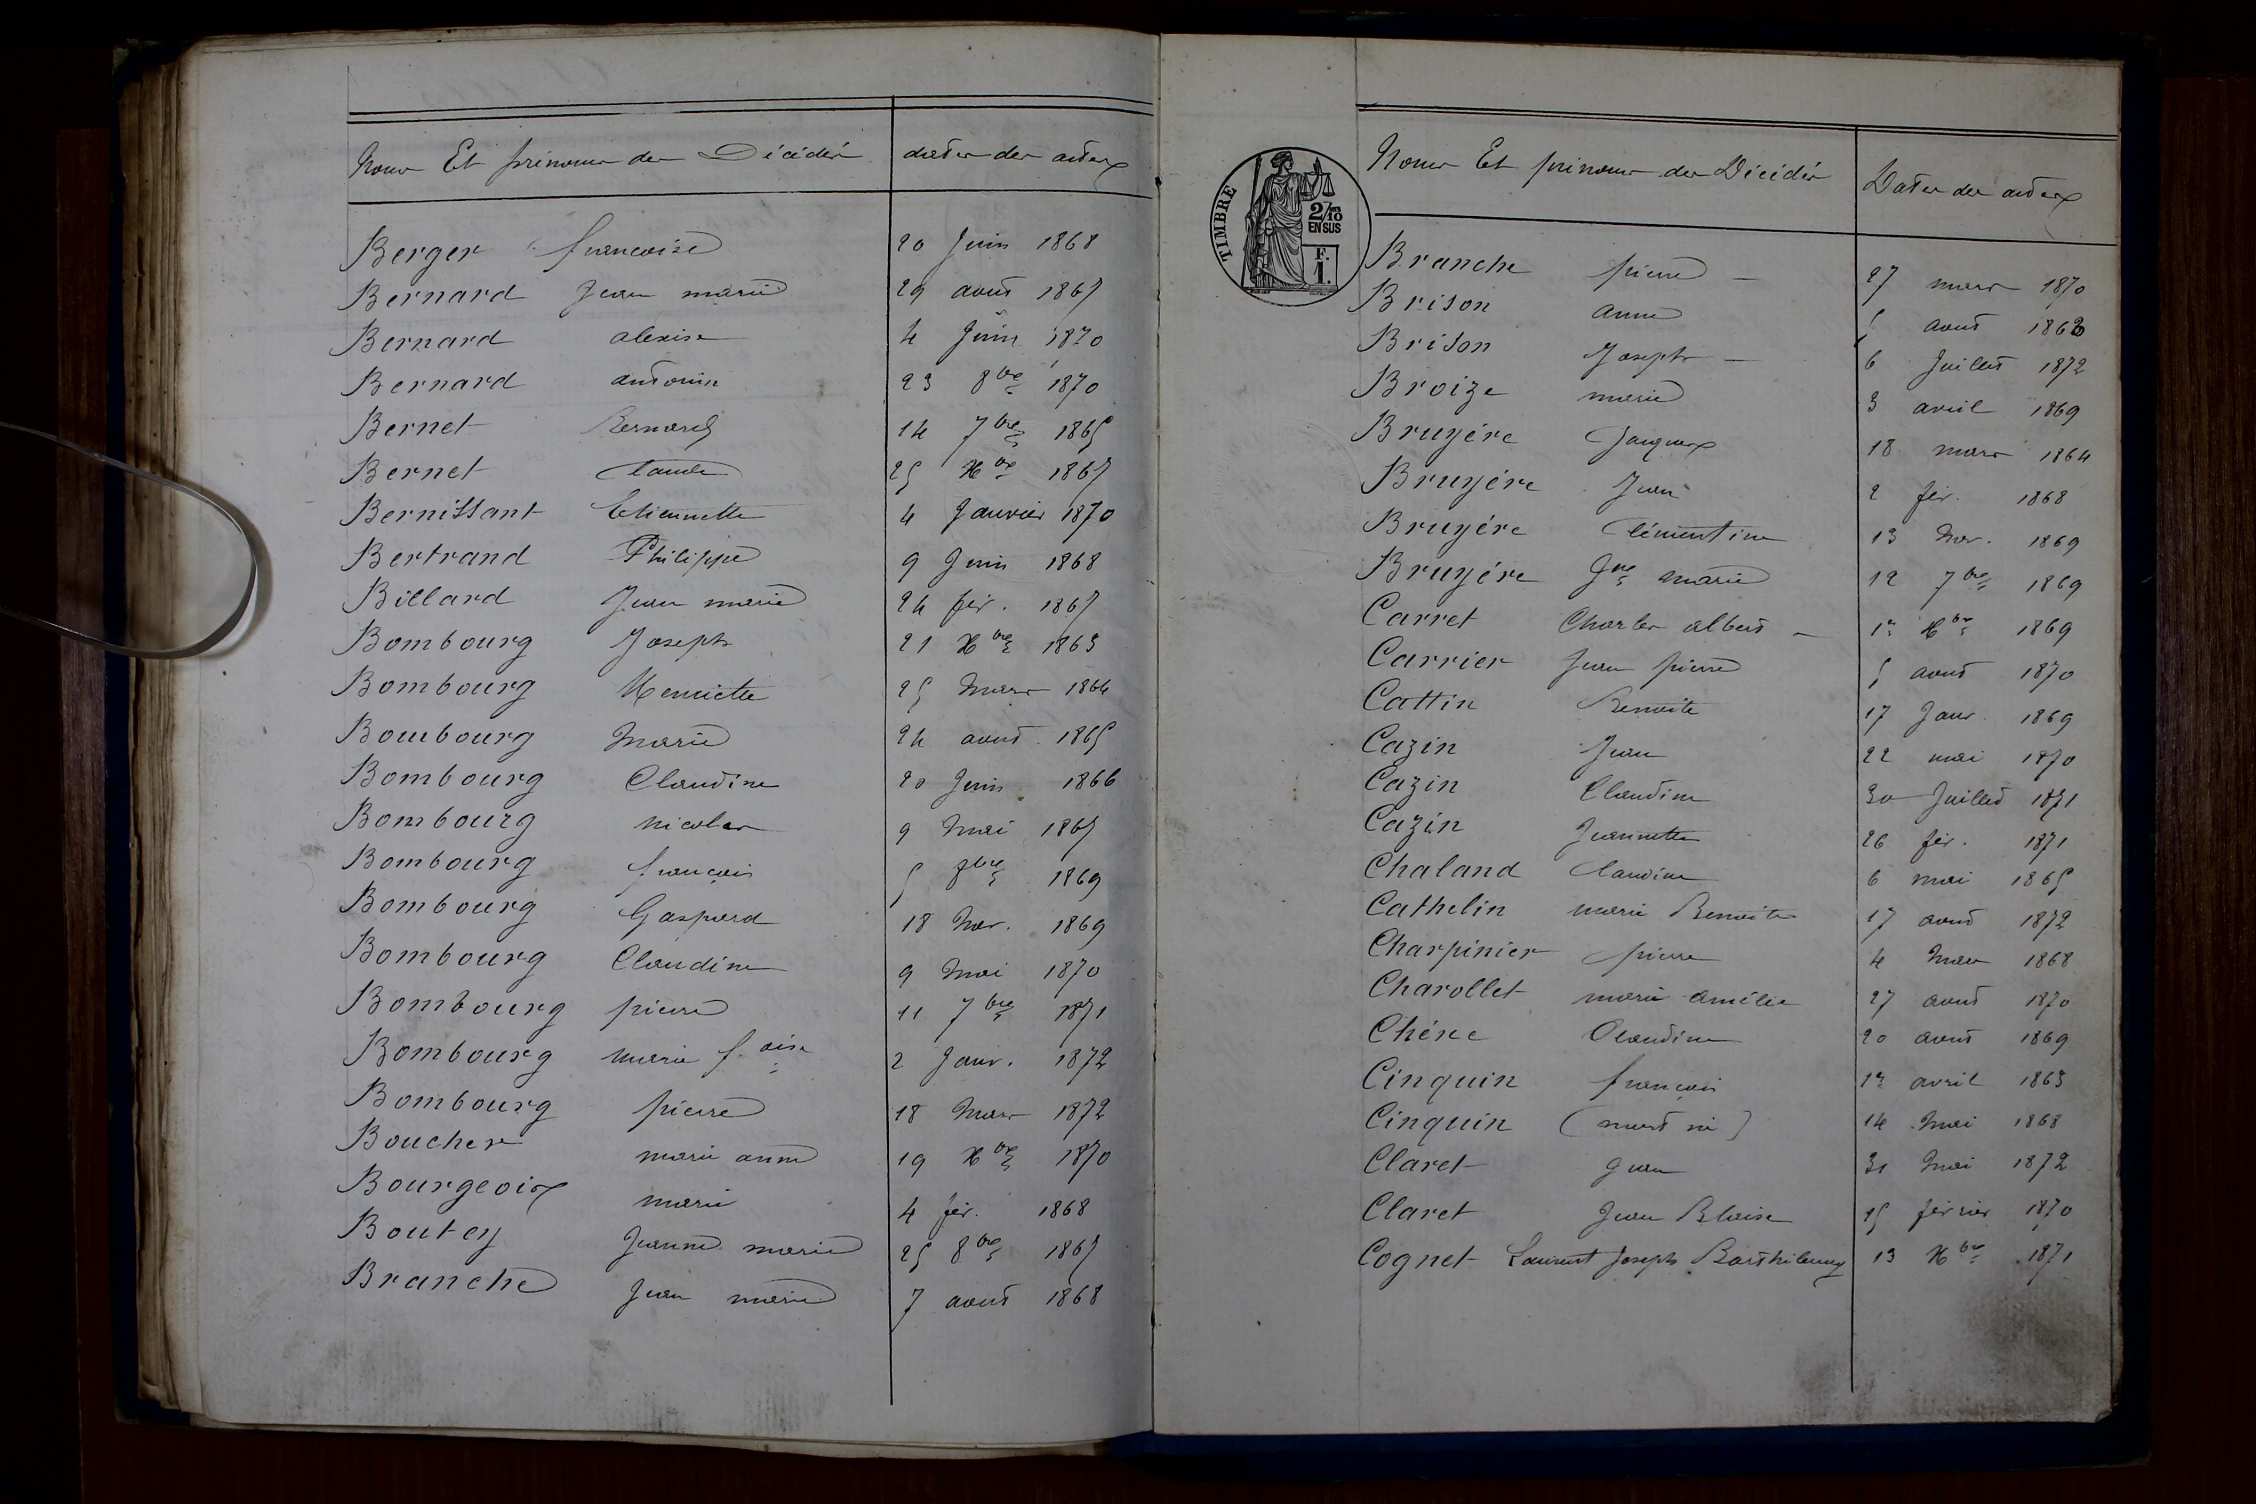 Noms Et prénoms des Décédés dates des actes
Berger françoise 20 Juin 1868
Bernard Jean marie 29 aout 1867
Bernard alexise 4 Juin 1870
Bernard antonin 23 8bre 1870
Bernet Bernard 14 7bre 1865
Bernet Claude 25 Xbre 1867
Bernissant Etiennette 4 Janvier 1870
Bertrand Philippe 9 Juin 1868
Billard Jean marie 24 fév. 1867
Bombourg Joseph 21 Xbre 1863
Bombourg Henriette 25 Mars 1864
Bombourg Marie 24 aout 1865
Bombourg Claudine 20 Juin 1866
Bombourg nicolas 9 Mai 1867
Bombourg françois 5 7bre 1869
Bombourg Gaspard 18 Nov. 1869
Bombourg Claudine 9 Mai 1870
Bombourg pierre 11 7bre 1871
Bombourg marie f.oise 2 Janv. 1872
Bombourg pierre 18 Mars 1872
Boucher marie anne 19 Xbre 1870
Bourgeois marie 4 fév. 1868
Boutey Jeanne marie 25 8bre 1867
Branche Jean marie 7 aout 1868
TIMBRE
2/10
EN SUS
F.
1.
Noms Et prénoms des Décédés Dates des actes
Branche pierre 27 mars 1870
Brison anne 5 aout
Brison Joseph 6 Juillet 1872
Broize marie 3 avril 1869
Bruyére Jacques 18 mars 1864
Bruyére Jean 2 fév. 1868
Bruyére Clémentine 13 Nov. 1869
Bruyére Jne marie 12 7bre 1869
Carret Charles albert 1er Xbre 1869
Carrier Jean pierre 5 aout 1870
Cattin Benoite 17 Janv. 1869
Cazin Jean 22 mai 1870
Cazin Claudine 30 Juillet 1871
Cazin Jeannette 26 fév. 1871
Chaland Claudine 6 mai 1865
Cathelin marie Benoite 17 aout 1872
Charpinier pierre 4 Mars 1868
Charollet marie amélie 27 aout 1870
Chéne Claudine 20 aout 1869
Cinquin françois 1er avril 1863
Cinquin (mort né) 14 Mai 1868
Claret Jean 31 Mai 1872
Claret Jean Blaise 15 février 1870
Cognet Laurent Joseph Barthélemy 13 Xbre 1871